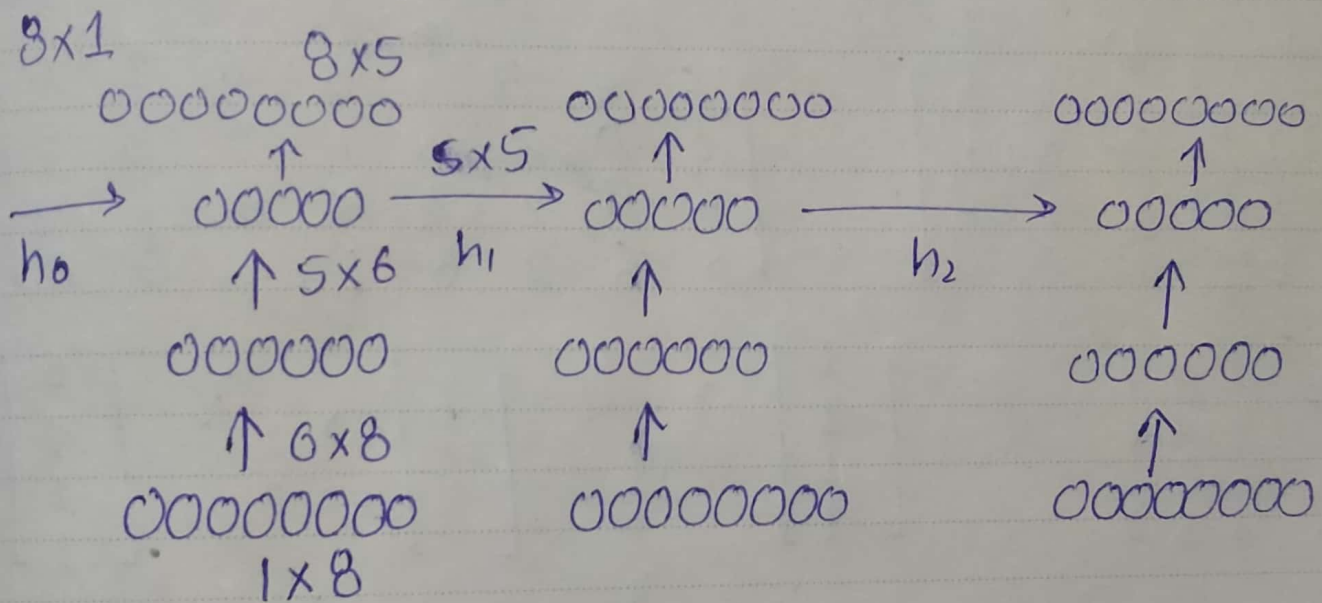 8x1
8x5
00000000 00000000 00000000
↑ ↑ ↑
→ 00000 5x5 → 00000 → 00000
h0 h1 h2
↑ 5x6 ↑ ↑
000000 000000 000000
↑ 6x8 ↑ ↑
00000000 00000000 00000000
1x8